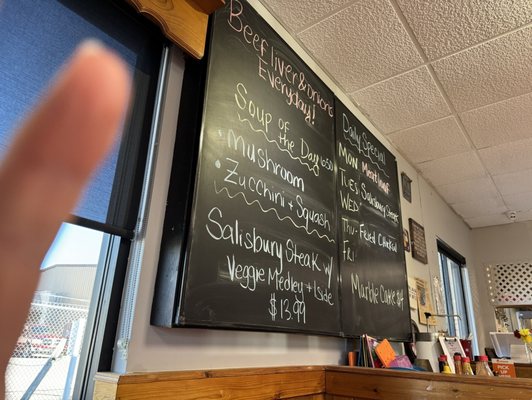 Beef liver & onions
Everyday!
Soup of
the Day
• Mushroom
• Zucchini + Squash
Salisbury Steak w/
Veggie Medley + 1 side
$13.99
Daily Special
Mon Meatloaf
Tues Salisbury Steak
Wed
Thu- Fried Chicken
Fri
Marble Cake
PICK UP